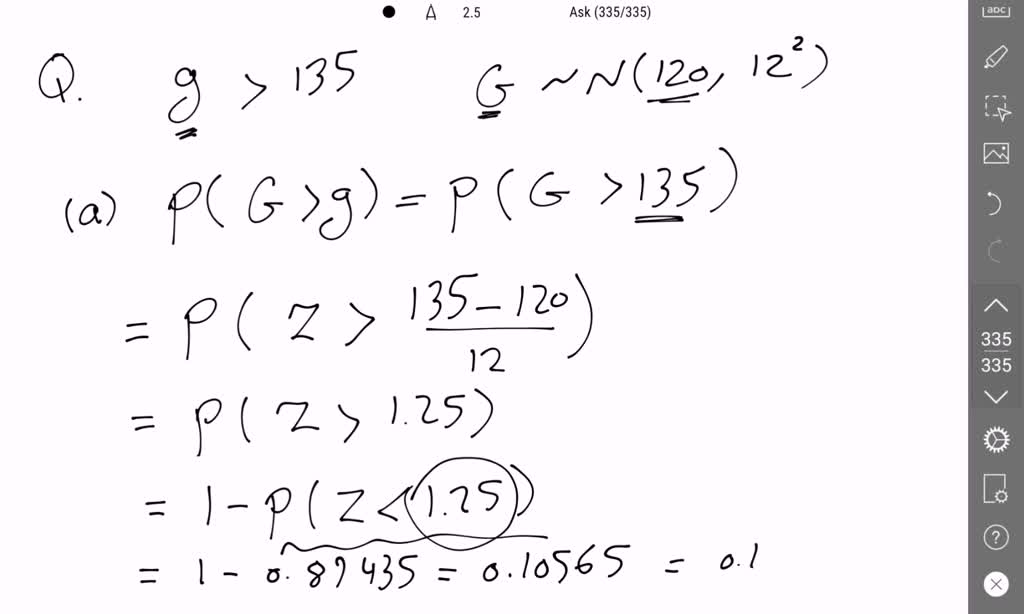 A 2.5 Ask (335/335)
abc
Q. g > 135 G ~ N(120, 12²)
(a) P(G>g) = P(G > 135)
= P(Z > (135-120)/12)
= P(Z > 1.25)
= 1 - P(Z < 1.25)
= 1 - 0.89435 = 0.10565 = 0.1
335
335
?